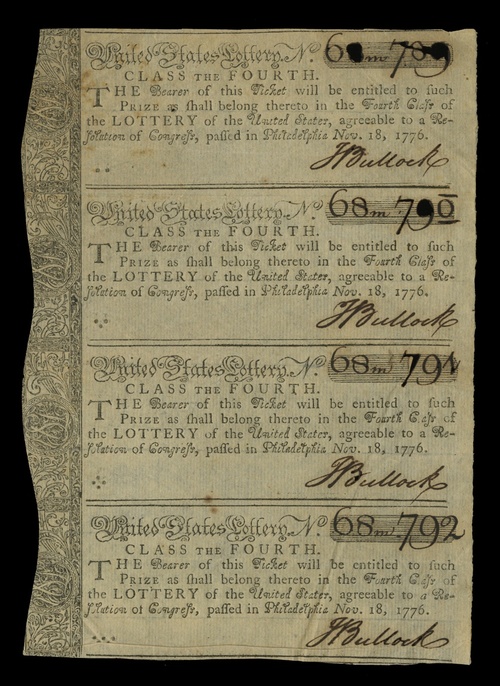 United States Lottery. No. 68m 789
CLASS THE FOURTH.
THE Bearer of this Ticket will be entitled to such
PRIZE as shall belong thereto in the Fourth Class of
the LOTTERY of the United States, agreeable to a Re-
solution of Congress, passed in Philadelphia Nov. 18, 1776.
H Bullock
United States Lottery. No. 68m 790
CLASS THE FOURTH.
THE Bearer of this Ticket will be entitled to such
PRIZE as shall belong thereto in the Fourth Class of
the LOTTERY of the United States, agreeable to a Re-
solution of Congress, passed in Philadelphia Nov. 18, 1776.
H Bullock
United States Lottery. No. 68m 791
CLASS THE FOURTH.
THE Bearer of this Ticket will be entitled to such
PRIZE as shall belong thereto in the Fourth Class of
the LOTTERY of the United States, agreeable to a Re-
solution of Congress, passed in Philadelphia Nov. 18, 1776.
H Bullock
United States Lottery. No. 68m 792
CLASS THE FOURTH.
THE Bearer of this Ticket will be entitled to such
PRIZE as shall belong thereto in the Fourth Class of
the LOTTERY of the United States, agreeable to a Re-
solution of Congress, passed in Philadelphia Nov. 18, 1776.
H Bullock